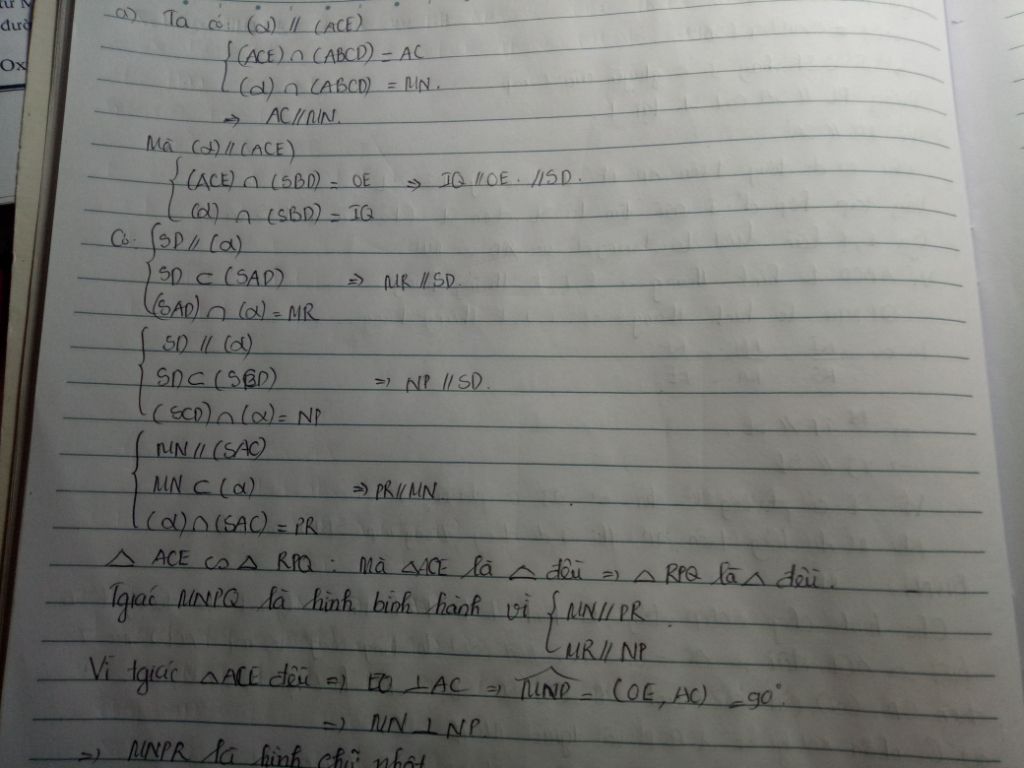 từ N
đườ
Ox
a) Ta có (α) // (ACE)
{(ACE) ∩ (ABCD) = AC
(α) ∩ (ABCD) = MN.
=> AC//MN.
Mà (α)//(ACE)
{(ACE) ∩ (SBD) = OE => IQ//OE. //SD.
(α) ∩ (SBD) = IQ
Có: {SD // (α)
SD ⊂ (SAD) => MR//SD.
(SAD) ∩ (α) = MR
{SD // (α)
SD ⊂ (SBD) => NP//SD.
(SCD) ∩ (α) = NP
{MN // (SAC)
MN ⊂ (α) => PR//MN
(α) ∩ (SAC) = PR
△ ACE ∽ △ RPQ : Mà △ACE là △ đều => △ RPQ là △ đều.
Tgiác MNPQ là hình bình hành vì {MN//PR
MR//NP
Vì tgiác △ACE đều => EO ⊥ AC => MNP = (OE, AC) = 90°.
=> MN ⊥ NP
=> MNPR là hình chữ nhật